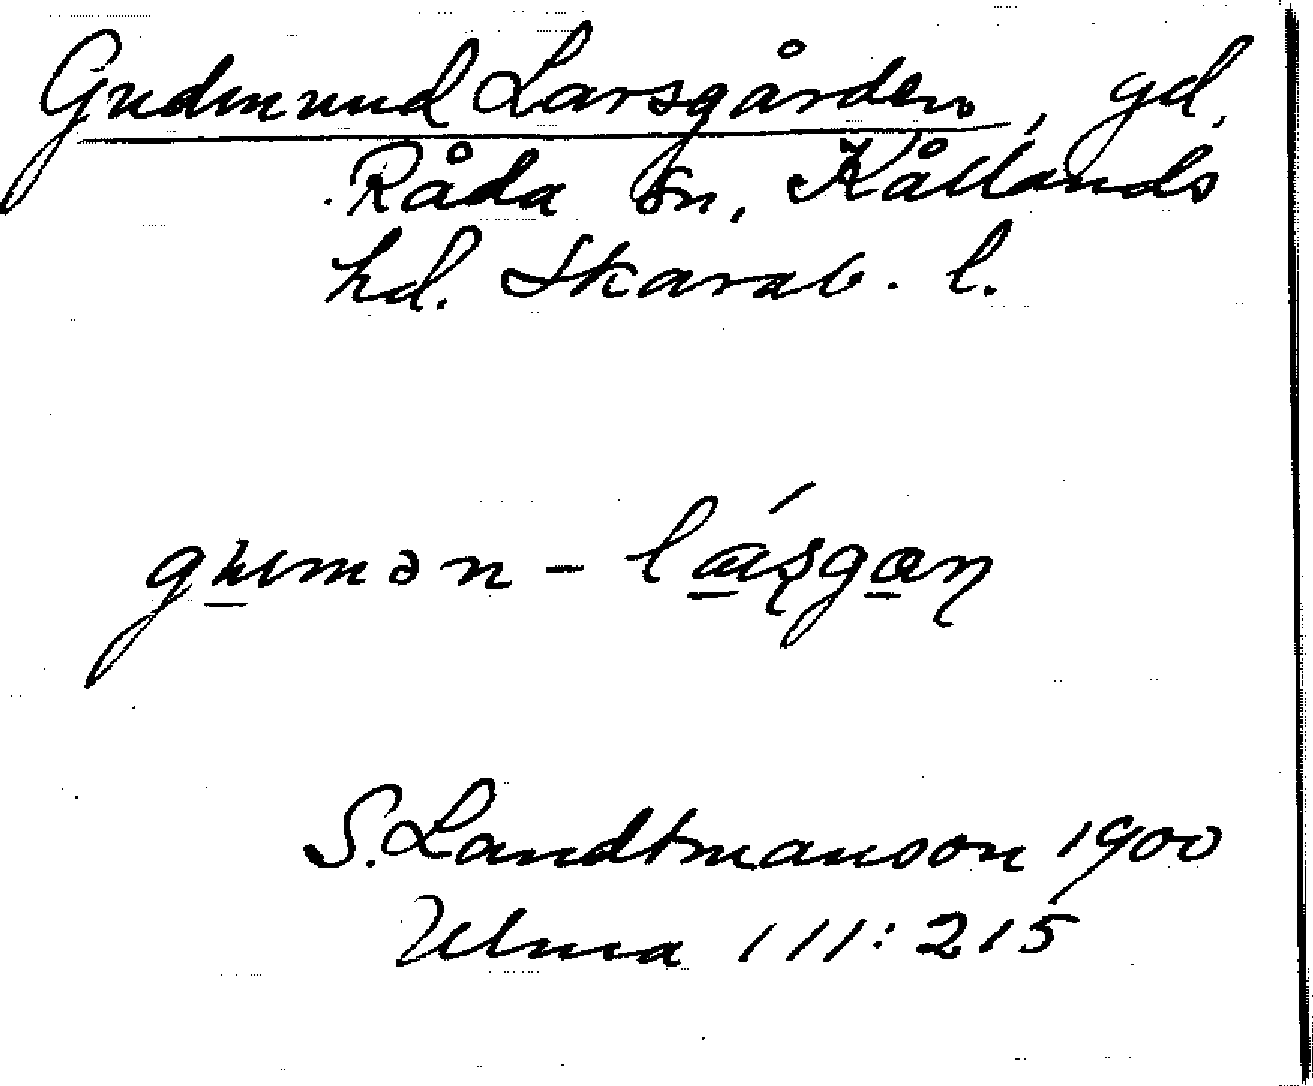 Gudmund Larsgården, gd,
Råda sn, Kållands
hd. Skarab. l.
gumən - lásgan
S. Landtmanson 1900
Ulma 111:215